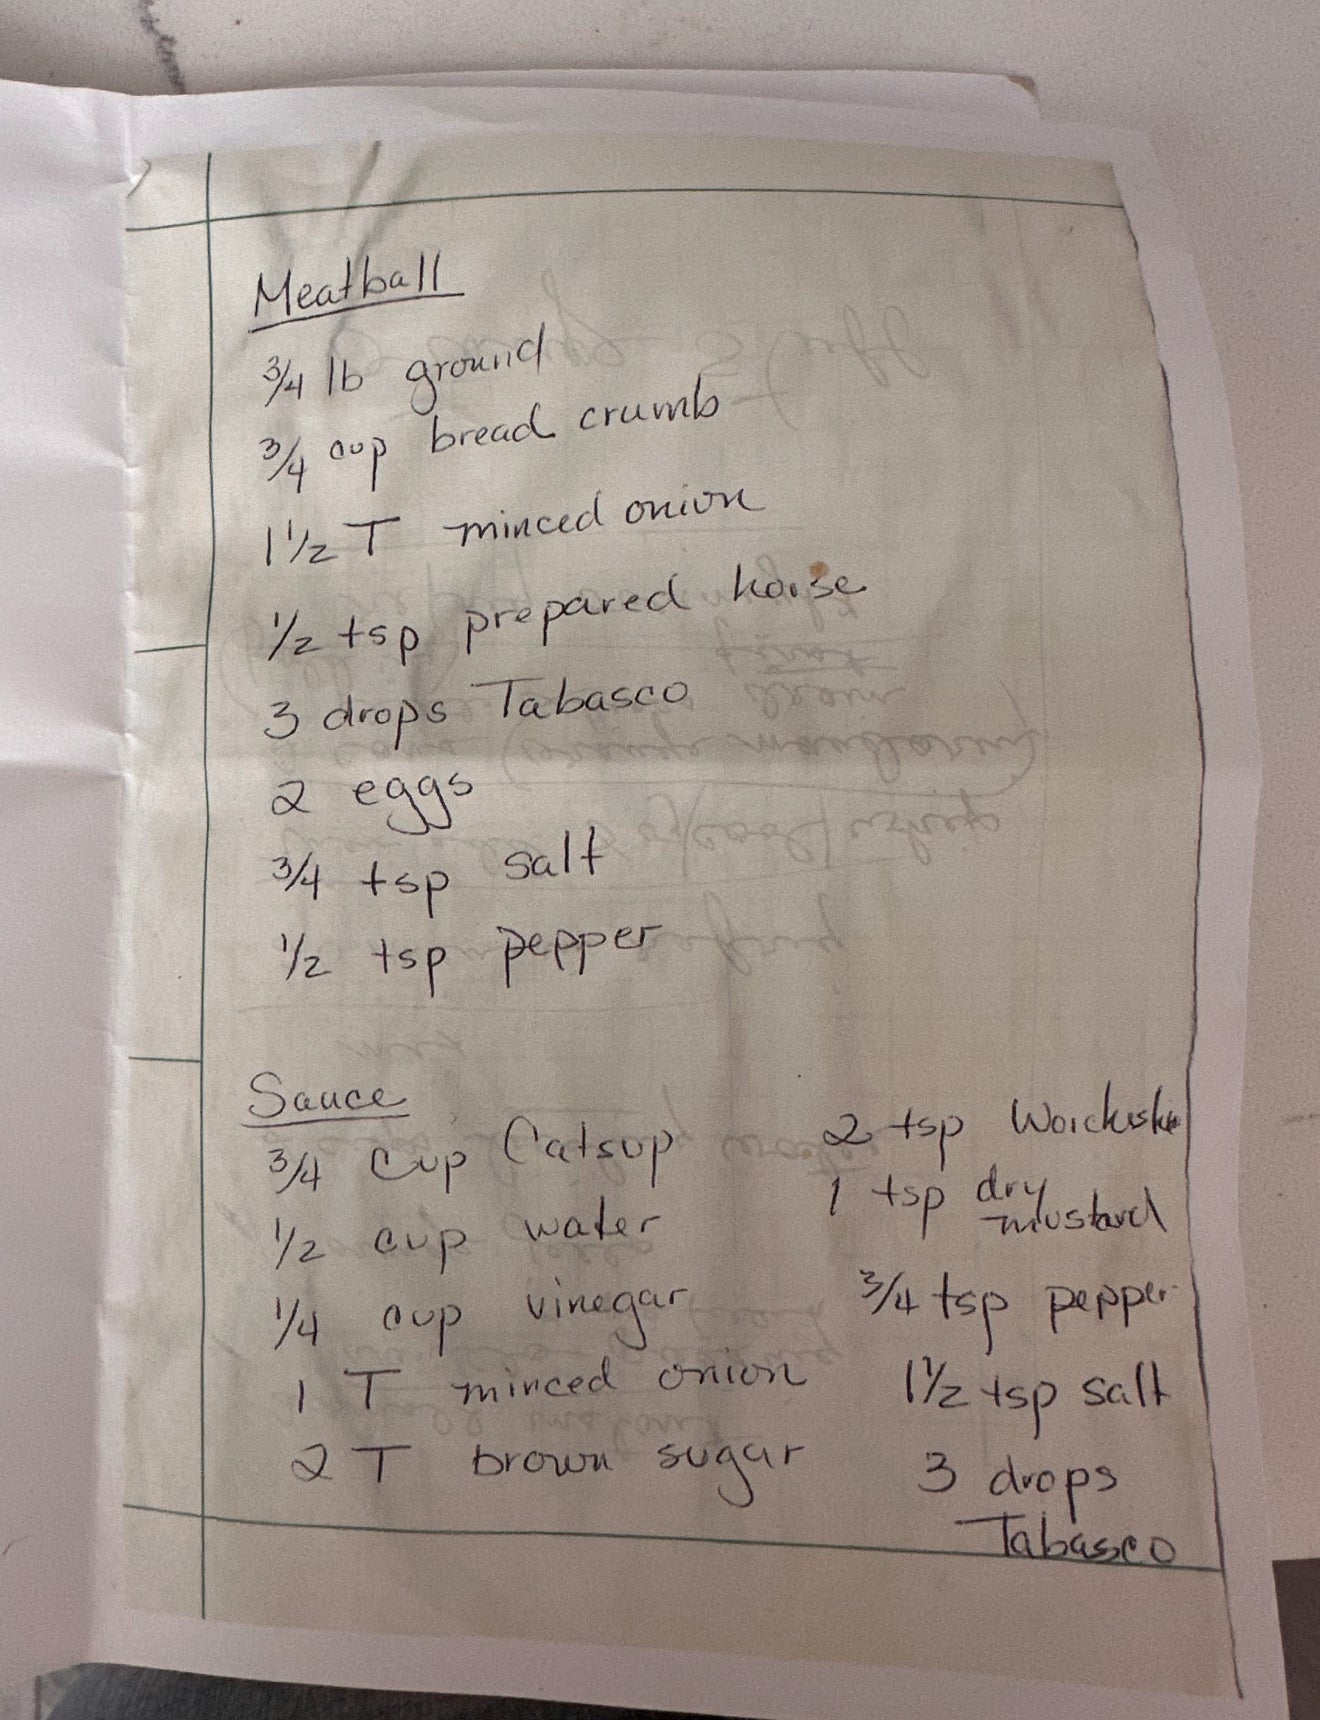 Meatball
3/4 lb ground
3/4 cup bread crumb
1 1/2 T minced onion
1/2 tsp prepared horse
3 drops Tabasco
2 eggs
3/4 tsp salt
1/2 tsp pepper
Sauce
3/4 Cup Catsup
1/2 cup water
1/4 cup vinegar
1 T minced onion
2 T brown sugar
2 tsp
1 tsp dry
mustard
3/4 tsp pepper
1 1/2 tsp salt
3 drops
Tabasco